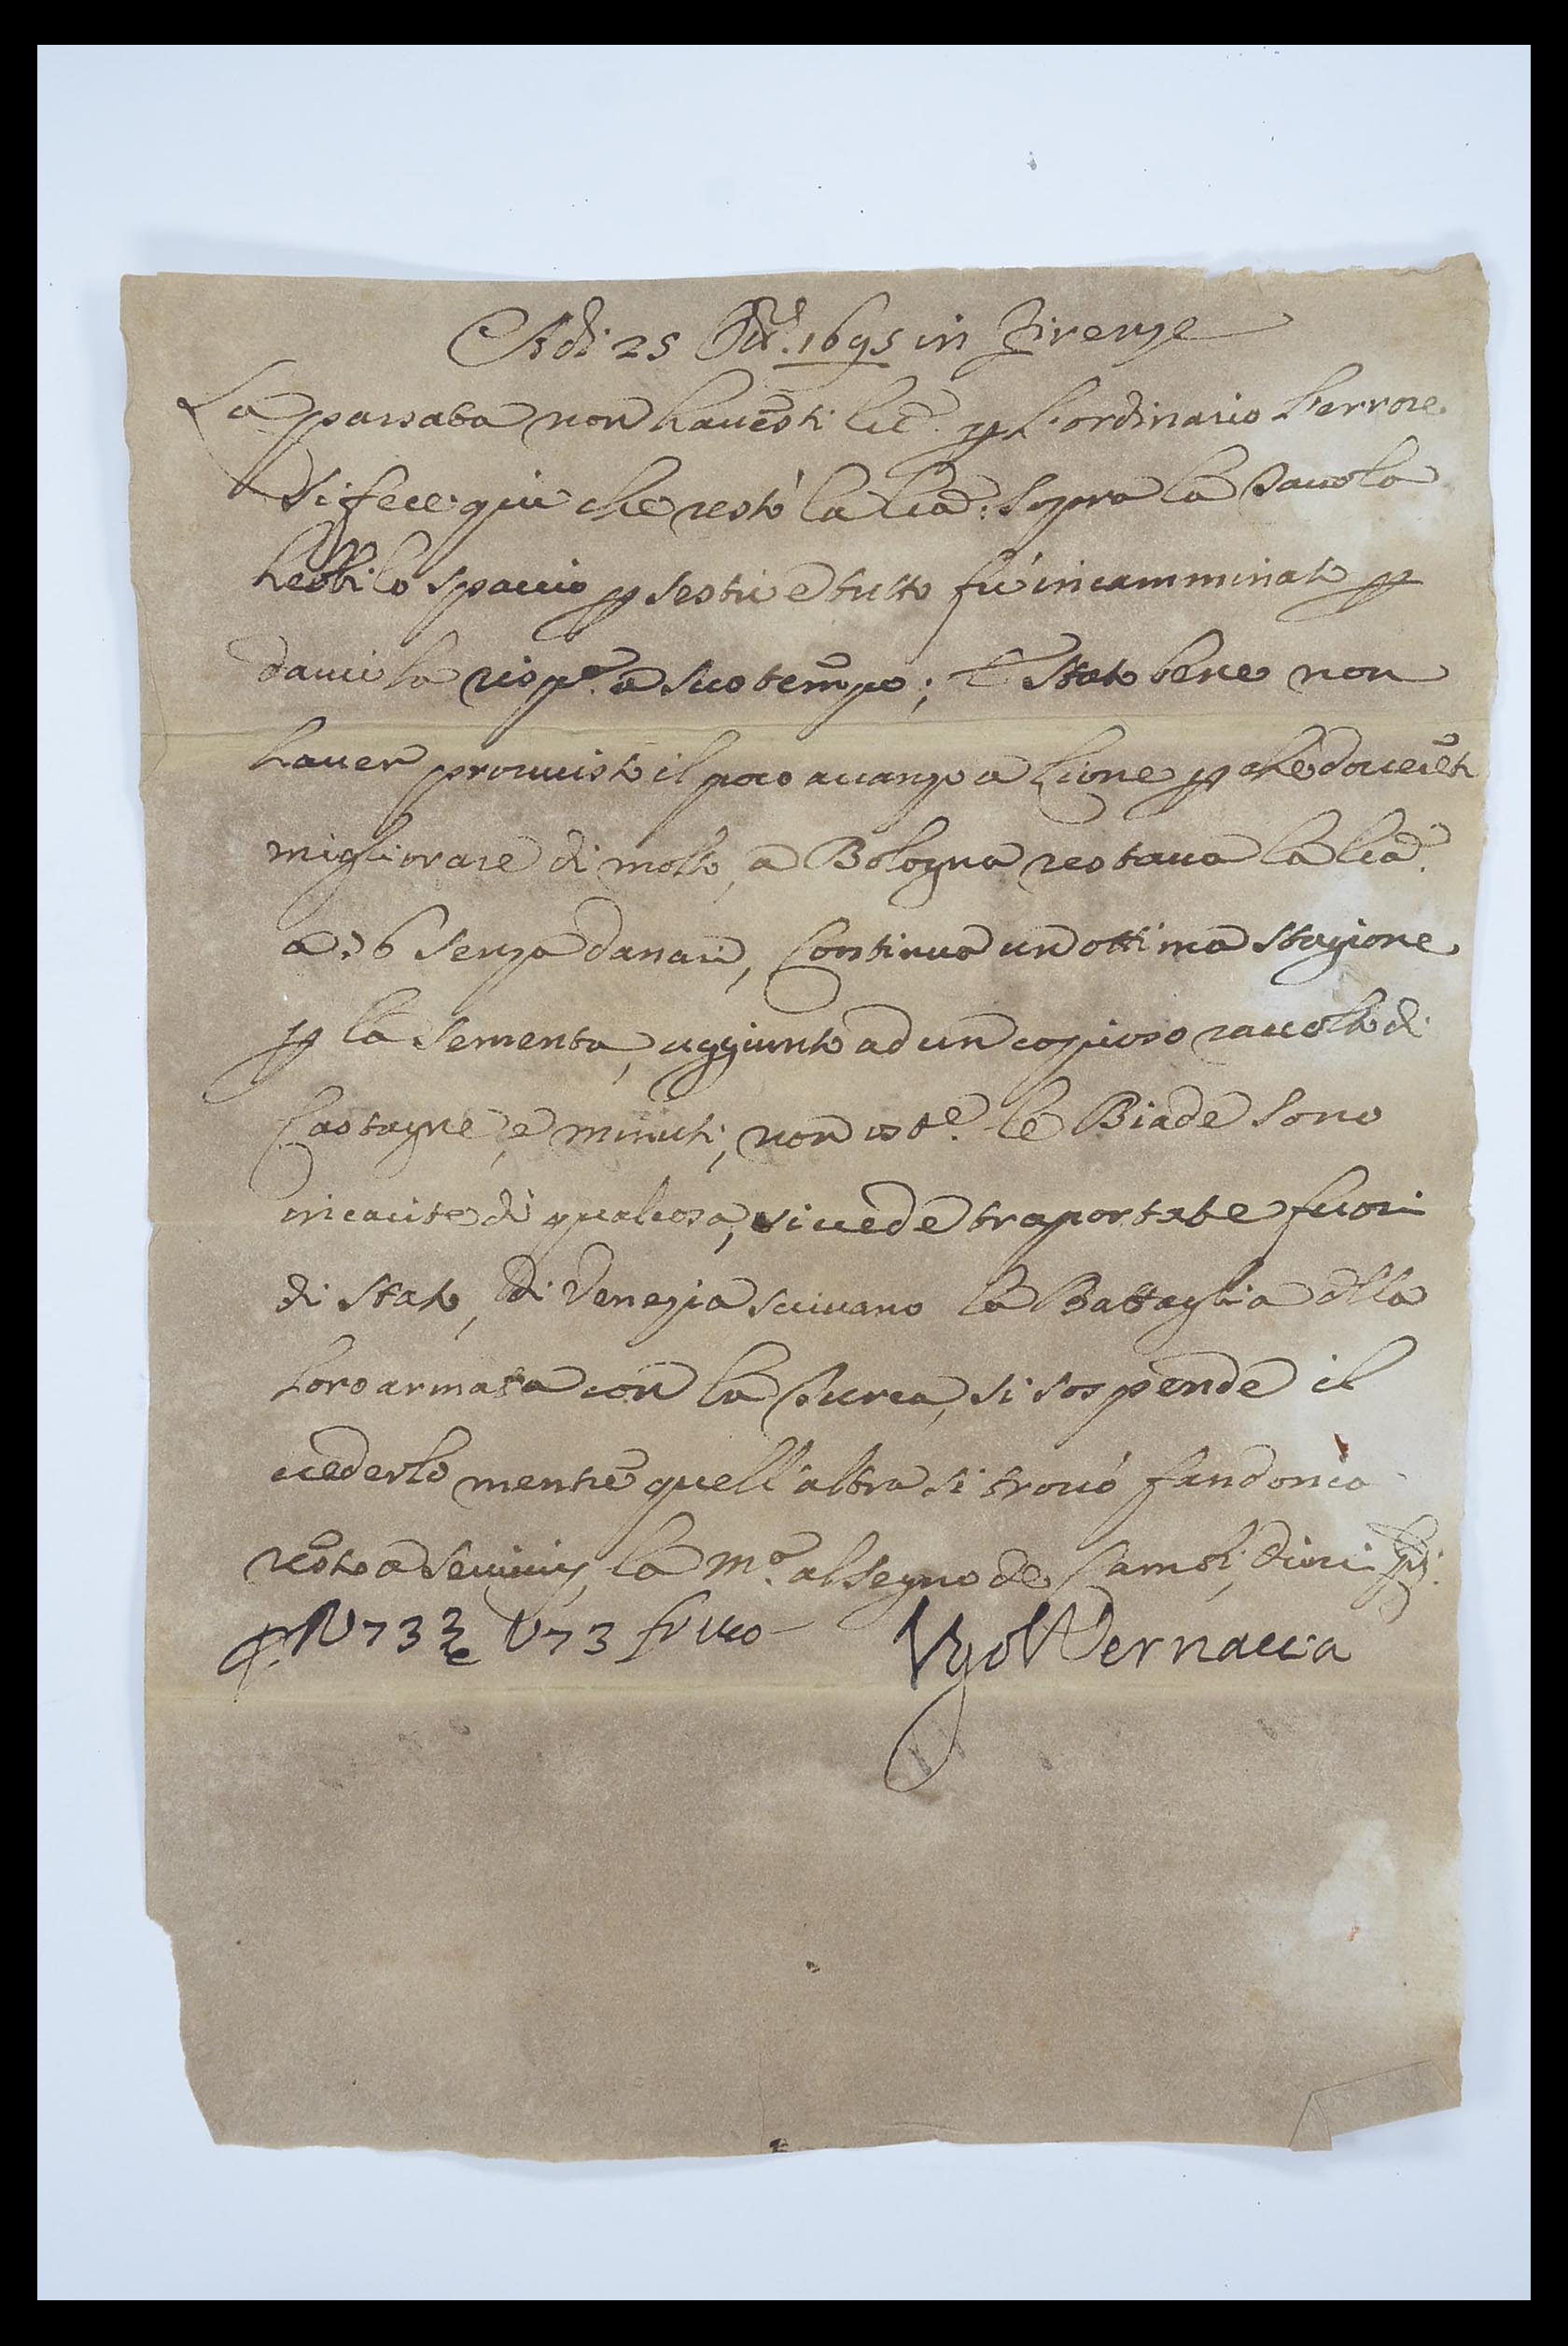 Adi 25 Ott.e 1695 in Firenze
La passata non havesti l'ordinario l'errore
si fece qui che restò la sopra la tavola
hebbi lo spaccio p sestri e tutto fu incamminato p
darvi la risp.a a suo tempo; È stato bene non
haver provvisto il poco avanzo a Lione p che
migliorare di molto, a Bologna restava la
a 36 senza danari, Continua un ottima stagione
p la sementa, aggiunto ad un copioso raccolto di
Castagne, e minuti, non ost.e le Biade sono
incarite di qualcosa, si vede traportate fuori
di stato, di Venezia scrivano la Battaglia dlla
loro armata con la Turca, si sospende il
vederlo mentre quell'altra si trovò fandonia
resto a la m.a al segno de
73 ⅔ 73
Ugo Vernacci